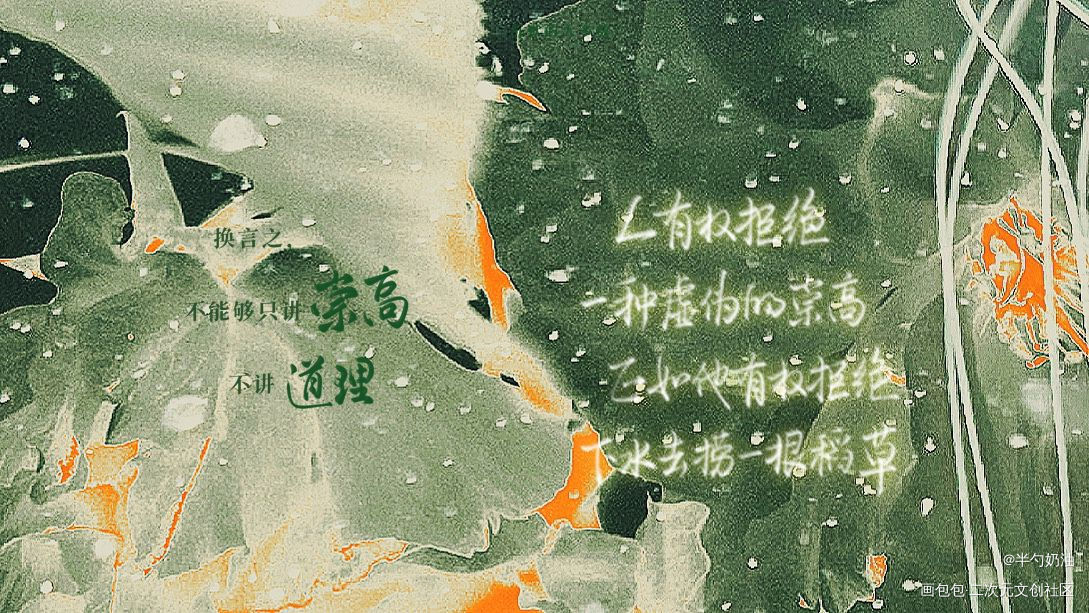 换言之，
不能够只讲崇高
不讲道理
人有权拒绝
一种虚伪的崇高
正如他有权拒绝
下水去捞一根稻草
@半勺奶油
画包包 二次元文创社区